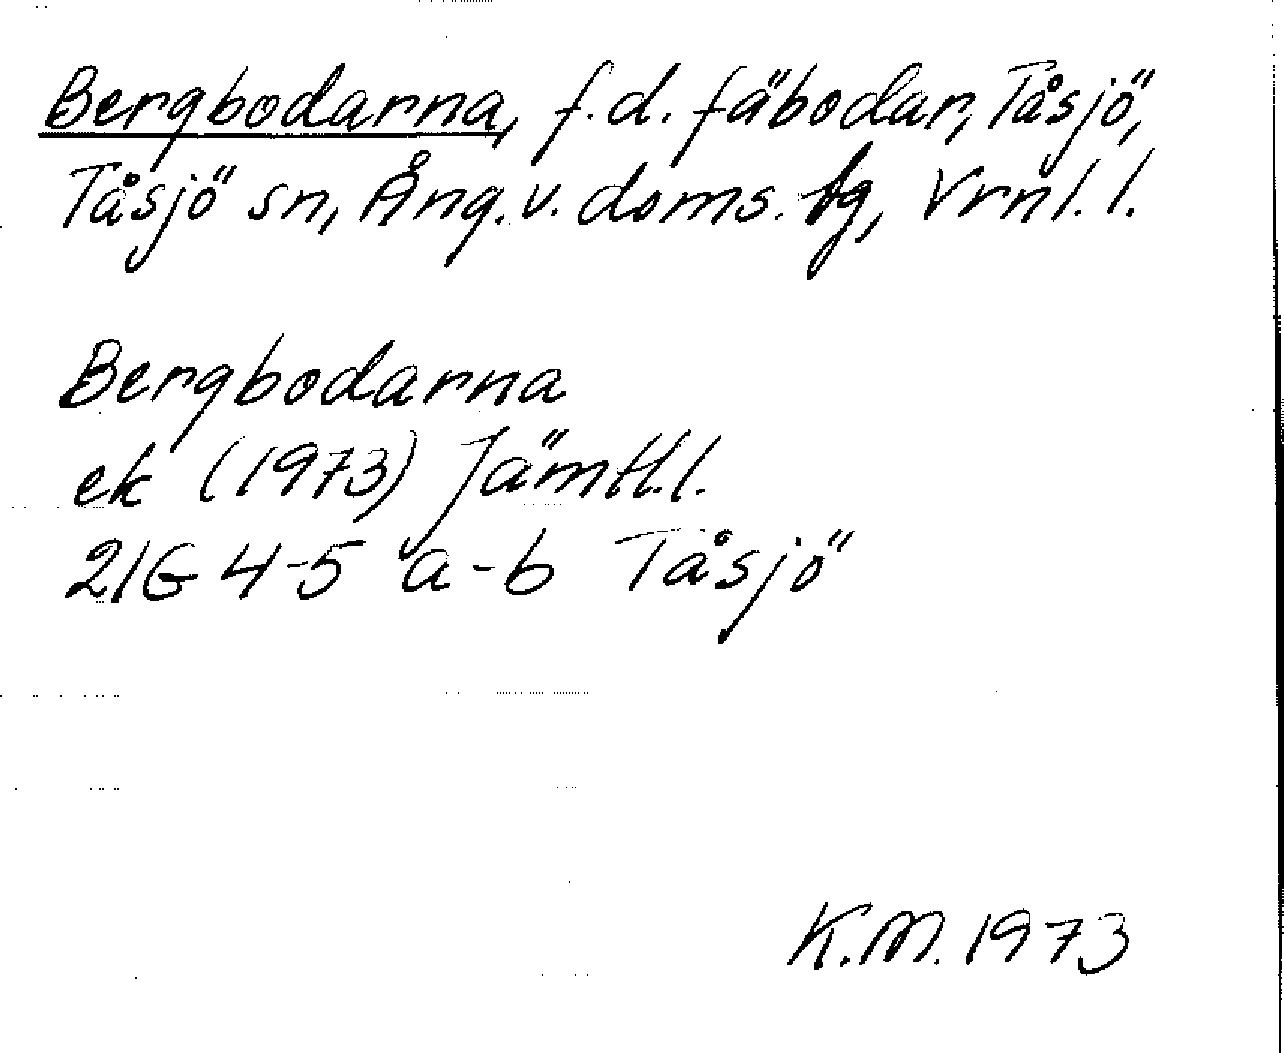 Bergbodarna, f.d. fäbodar, Tåsjö,
Tåsjö sn, Ång. v. doms. tg, Vrnl. l.
Bergbodarna
ek (1973) Jämtl. l.
21G 4-5 a-b Tåsjö
K.M. 1973